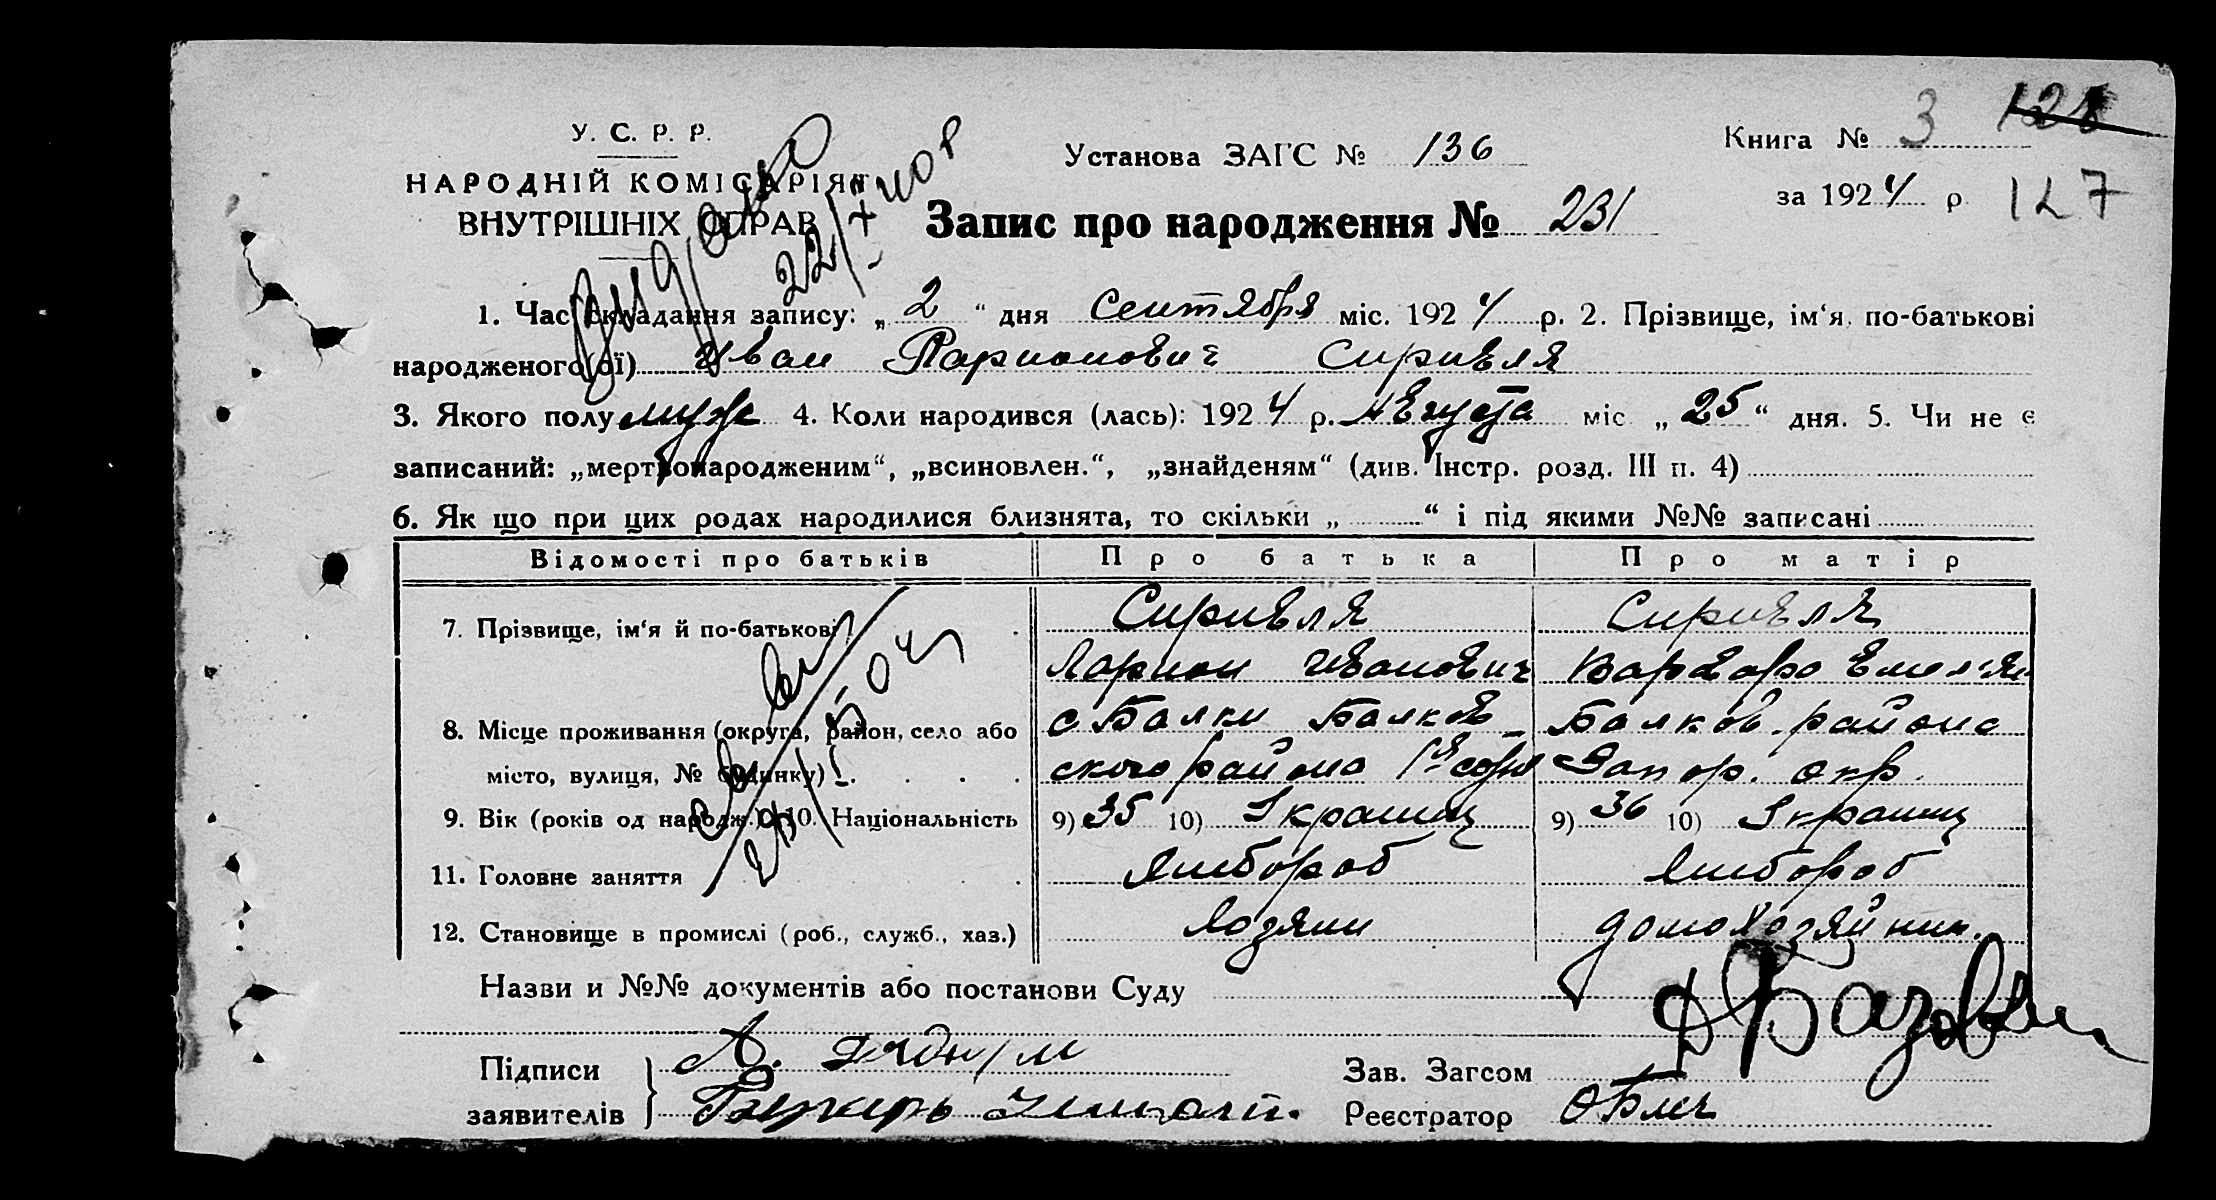 У. С. Р. Р.
НАРОДНІЙ КОМІСАРІЯТ
ВНУТРІШНІХ СПРАВ
Установа ЗАГС № 136
Книга № 3 128
за 1924 р. 127
Запис про народження № 231
Видано 22/X
1. Час складання запису: „2“ дня Сентября міс. 1924 р. 2. Прізвище, ім‘я, по-батькові
народженого(ої) Иван Ларионович
3. Якого полу муж 4. Коли народився (лась): 1924 р. Августа міс „25“ дня. 5. Чи не є
записаний: „мертвонародженим“, „всиновлен.“, „знайденям“ (див. Інстр. розд. III п. 4)
6. Як що при цих родах народилися близнята, то скільки „ “ і під якими №№ записані
Відомості про батьків Про батька Про матір
7. Прізвище, ім‘я й по-батькові
Ларион Иванович Варвара
8. Місце проживання (округа, район, село або с Балки Балков Балков. района
місто, вулиця, № будинку) ского района Запор. окр.
9. Вік (років од народж.) 10. Національність 9) 35 10) Украинц 9) 36 10) Украинц
11. Головне заняття Хлебороб Хлебороб
12. Становище в промислі (роб., служб., хаз.) Хозяин домохозяйнич.
Назви и №№ документів або постанови Суду
Підписи
заявителів
Зав. Загсом
Реєстратор